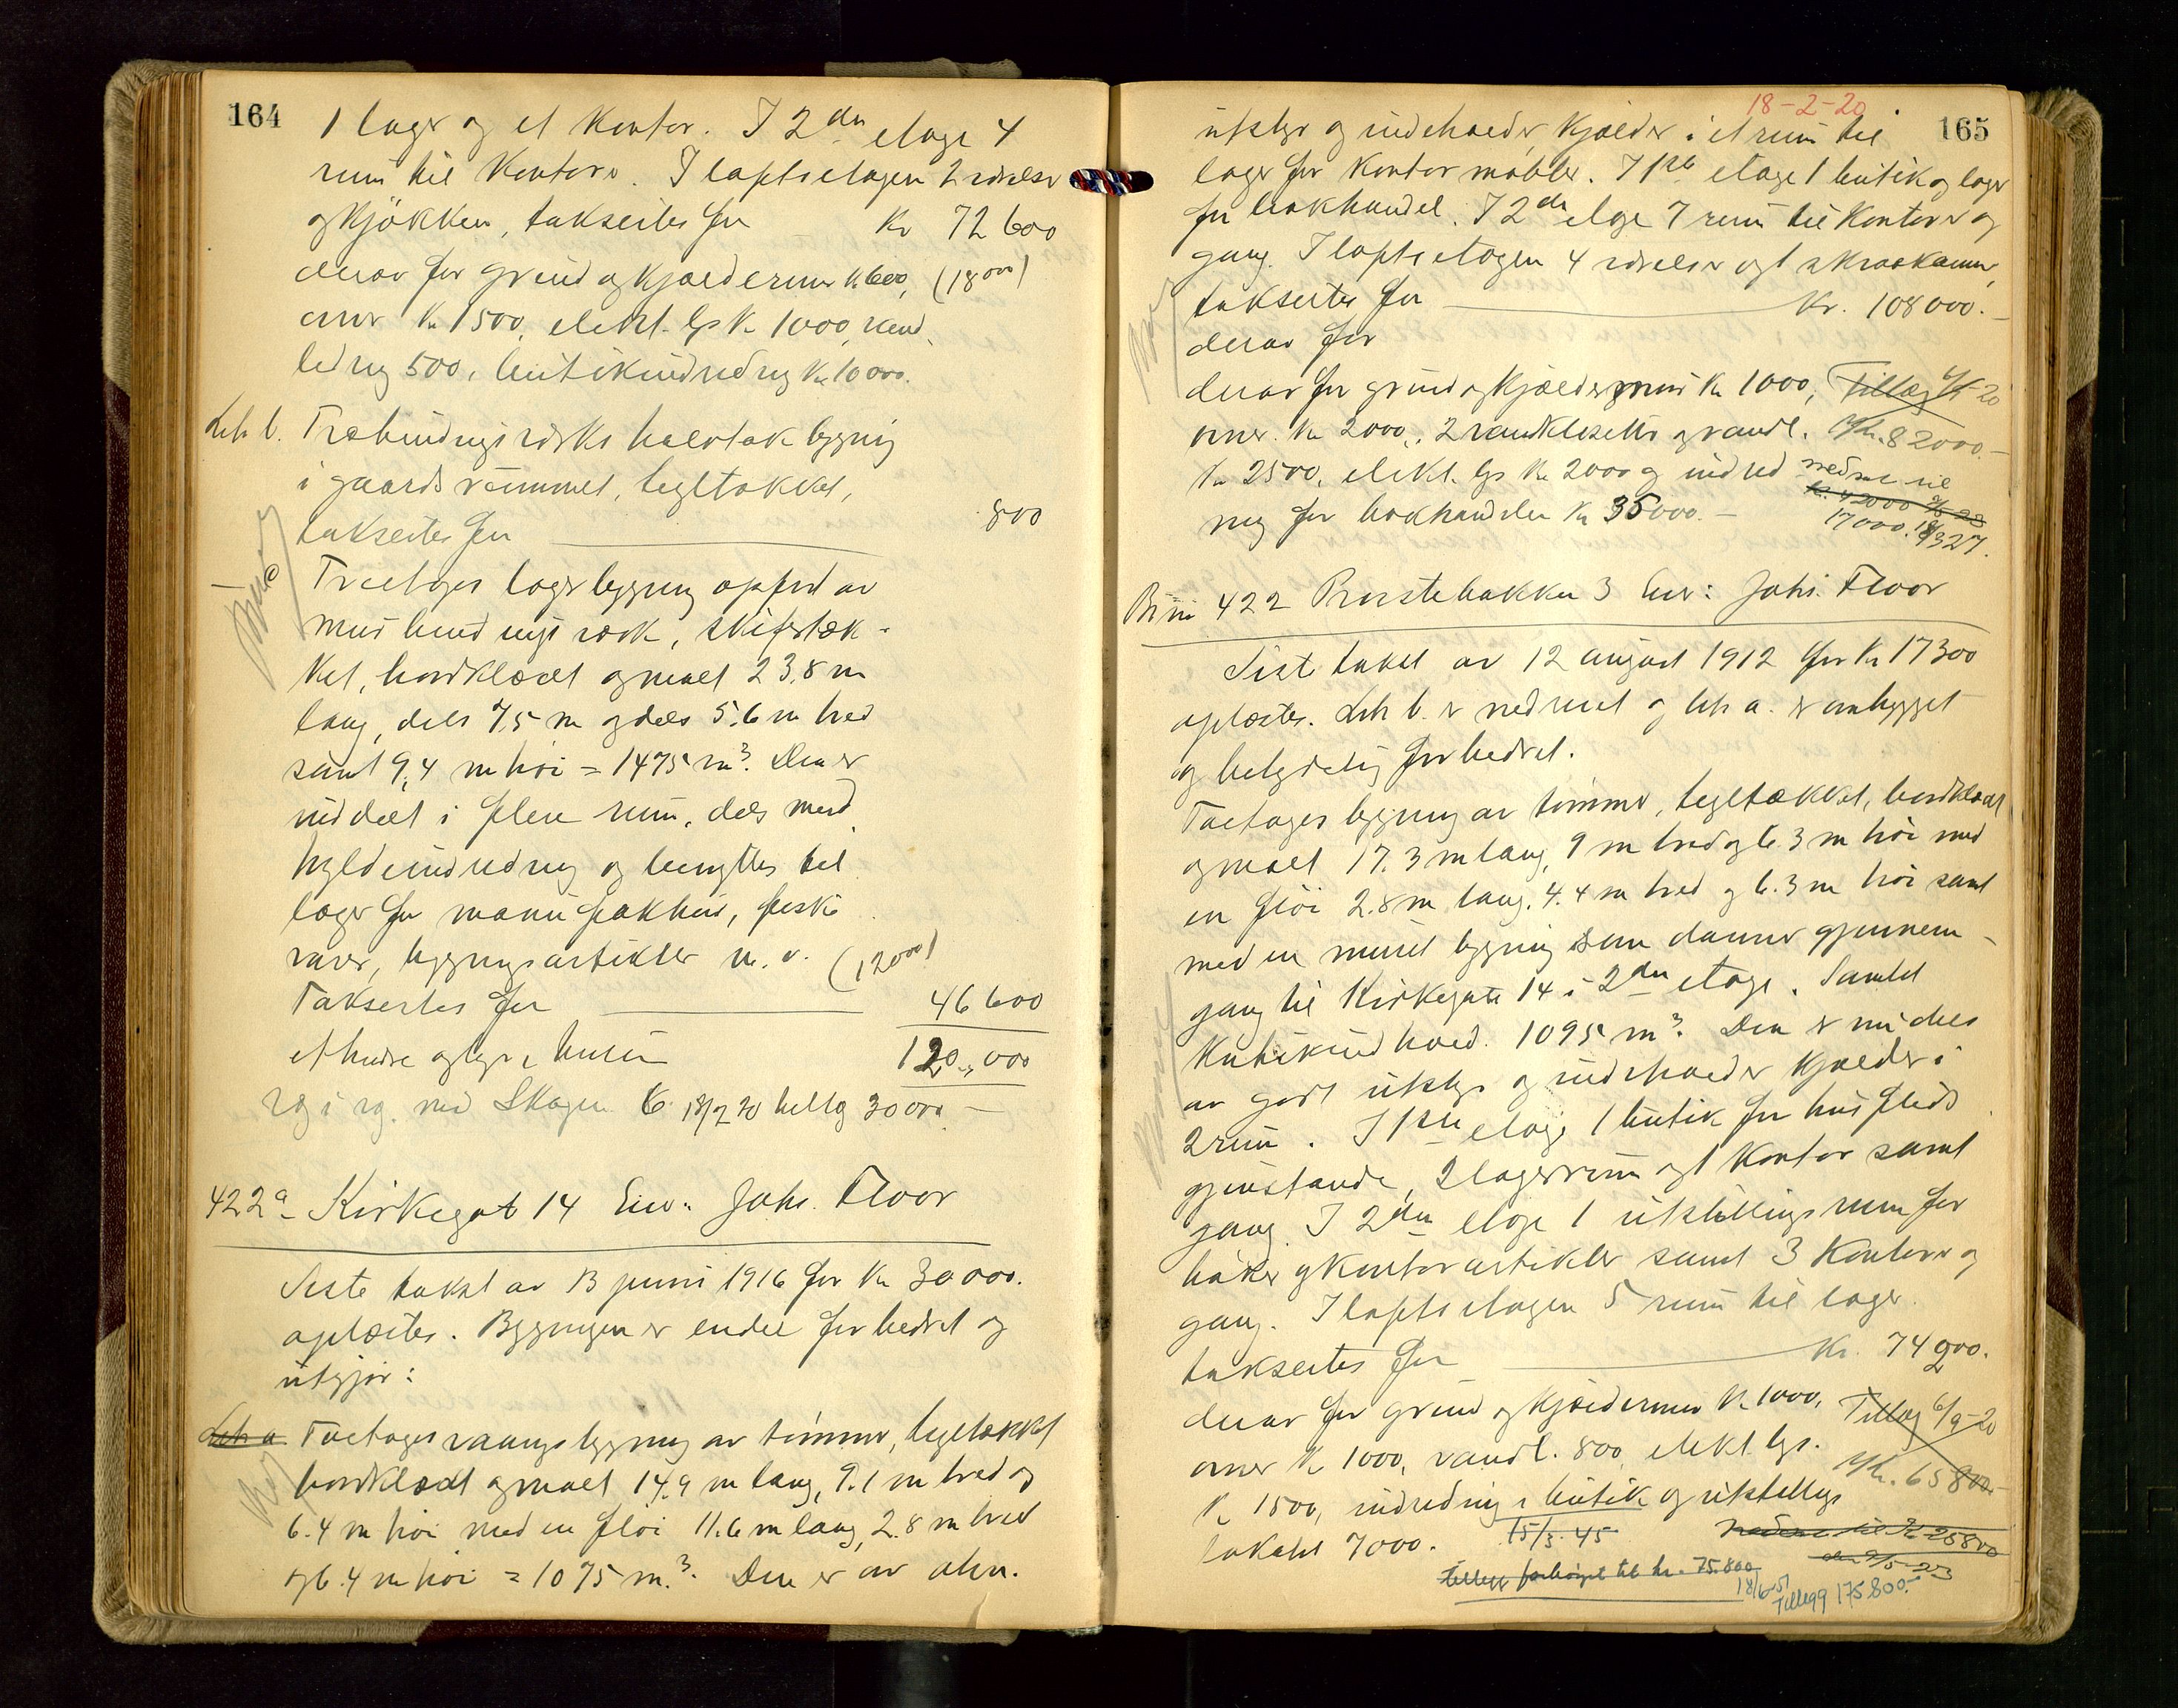 164
1 lager og et kontor. I 2den etage 4
rum til kontorer. I loftsetagen 2 værelser
og kjøkken, takseres for Kr 72 600
derav for grund og kjælderrum kr 600, (18000)
ovner kr 1500, elekt. lys kr 1000, vand
ledning 500, butikindredning kr 10 000.
Litr b. Træbindingsværks halvtak bygning
i gaardsrummet, tegltækket,
takseres for 800
— Treetages lagerbygning opført av
mur bindingsværk, skifertæk-
ket, bordklædt og malt 23,8 m
lang, dels 7,5 m og dels 5,6 m bred
samt 9,4 m høi = 1475 m³. Den er
inddelt i flere rum, dels med
hyldeindredning og benyttes til
lager for manufakhur, feske
varer, bygningsartikler m. v. (12000)
Takseres for 46 600
120,000
18/2 20 tillæg 30000.—
422a Kirkegat 14 Eier: Johs. Floor
Siste takst av 13 juni 1916 for kr 30 000.
oplæstes. Bygningen er endel forbedret og
utgjør:
Litr a. Toetages vaaningsbygning av tømmer, tegltækket
bordklædt og malt 14,9 m lang, 9.1 m bred og
6.4 m høi med en fløi 11.6 m lang, 2.8 m bred
og 6.4 m høi = 1075 m.³. Den er av alm.
18-2-20
165
utstyr og indeholder kjælder i et rum til
lager for kontormøbler. I 1ste etage 1 butik og lager
for bokhandel. I 2den etage 7 rum til kontorer og
gang. I loftsetagen 4 værelser og 1 skraakammer,
takseres for Kr. 108 000.—
derav for
derav for grund og kjælderrum kr 1000, Tillæg 6/9-20
ovner kr 2000, 2 vandklosetter og vandl. Kr. 82000.—
kr 2500, elekt. lys kr 2000 og indred nedsat til
ning for bokhandelen kr 35000.— kr. 42000
17000. 18/3 27.
Br.nr 422 Prostebakken 3 Eier: Johs. Floor
Siste takst av 12 august 1912 for kr 17300
oplæstes. Litr b. er nedrevet og litr a. er ombygget
og betydelig forbedret.
Toetages bygning av tømmer, tegltækket, bordklædt
og malt 17.3 m lang, 9 m bred og 6.3 m høi med
en fløi 2.8 m lang, 4.4 m bred og 6.3 m høi samt
med en muret bygning som danner gjennem-
gang til Kirkegate 14 i 2den etage. Samlet
kubikindhold. 1095 m³. Den er nu dels
av godt utstyr og indeholder kjælder i
2 rum. I 1ste etage 1 butik for husflids
gjenstande, 2 lagerrum og 1 kontor samt
gang. I 2den etage 1 utstillingsrum for
bøker og kontorartikler samt 3 kontorer og
gang. I loftsetagen 5 rum til lager.
takseres for Kr. 74 200.
derav for grund og kjælderrum kr 1000, Tillæg 6/9-20
ovner kr 1000, vandl. 800, elekt. lys. Kr. 65800.—
kr 1500, indredning i butik og utstillings
lokalet 7000. 15/3. 45 nedsat til Kr 25800
tillegg forhøiet til kr. 75.800 den 9/5-23
18/6-51 Tillegg 175.800.-